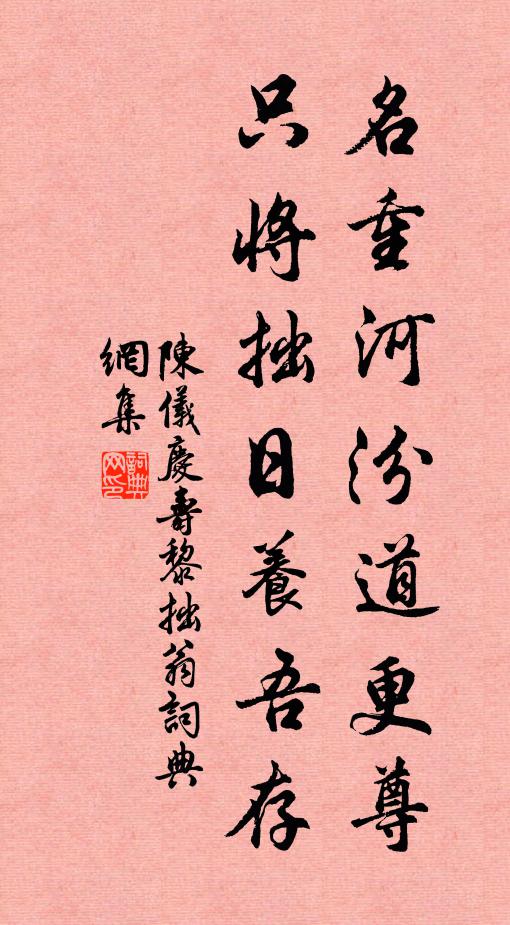 名重河汾道更尊
只將拙日養吾存
陳儀慶壽黎拙翁詞典
網集
詞典網印